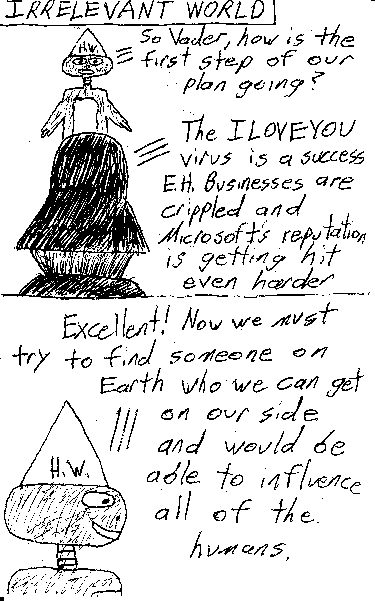 IRRELEVANT WORLD
H.W.
So Vader, how is the
first step of our
plan going?
The ILOVEYOU
virus is a success
E.H. Businesses are
crippled and
Microsoft's reputation
is getting hit
even harder
Excellent! Now we must
try to find someone on
Earth who we can get
on our side
and would be
able to influence
all of the
humans.
H.W.